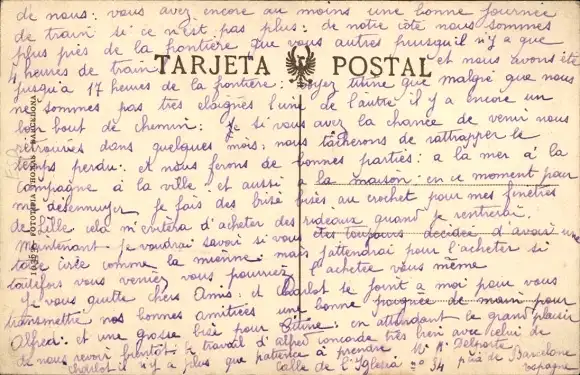 de nous: vous avez encore au moins une bonne journée
de train si ce n'est pas plus: de notre côté nous sommes
plus près de la frontière que vous autres puisqu'il n'y a que
4 heures de train et nous avons été
TARJETA POSTAL
jusqu'à 17 heures de la frontière: voyez titine que malgré que nous
ne sommes pas très eloignés l'une de l'autre il y a encore un
bon bout de chemin: Je si vous avez la chance de venir nous
retrouvés dans quelques mois: nous tâcherons de rattrapper le
temps perdu: et nous ferons de bonnes parties: a la mer à la
campagne à la ville: et aussi a la maison: en ce moment pour
me désennuyer je fais des brise bises au crochet pour mes fenêtres
de cela m'evitera d'acheter des rideaux quand je rentrerai.
maintenant Je voudrai savoir si vous êtes toujours décidée d'avoir une
cirée comme la mienne: mais j'attendrai pour l'acheter si
toutefois vous veniez vous pourriez l'achetée vous même
Je vous quitte chers Amis: et Charlot se joint a moi pour vous
transmettre nos bonnes amitiées une bonne poignée de main pour
Alfred: et une grosse bise pour Titine: en attendant le grand plaisir
de nous revoir bientôt le travail d'alfred concorde très bien avec celui de
charlot il n'y a plus que patience à prendre Mr Mme Delporte
calle de l'Iglesia no 34 près de Barcelone
espagne
FOTOTIPIA THOMAS - BARCELONA